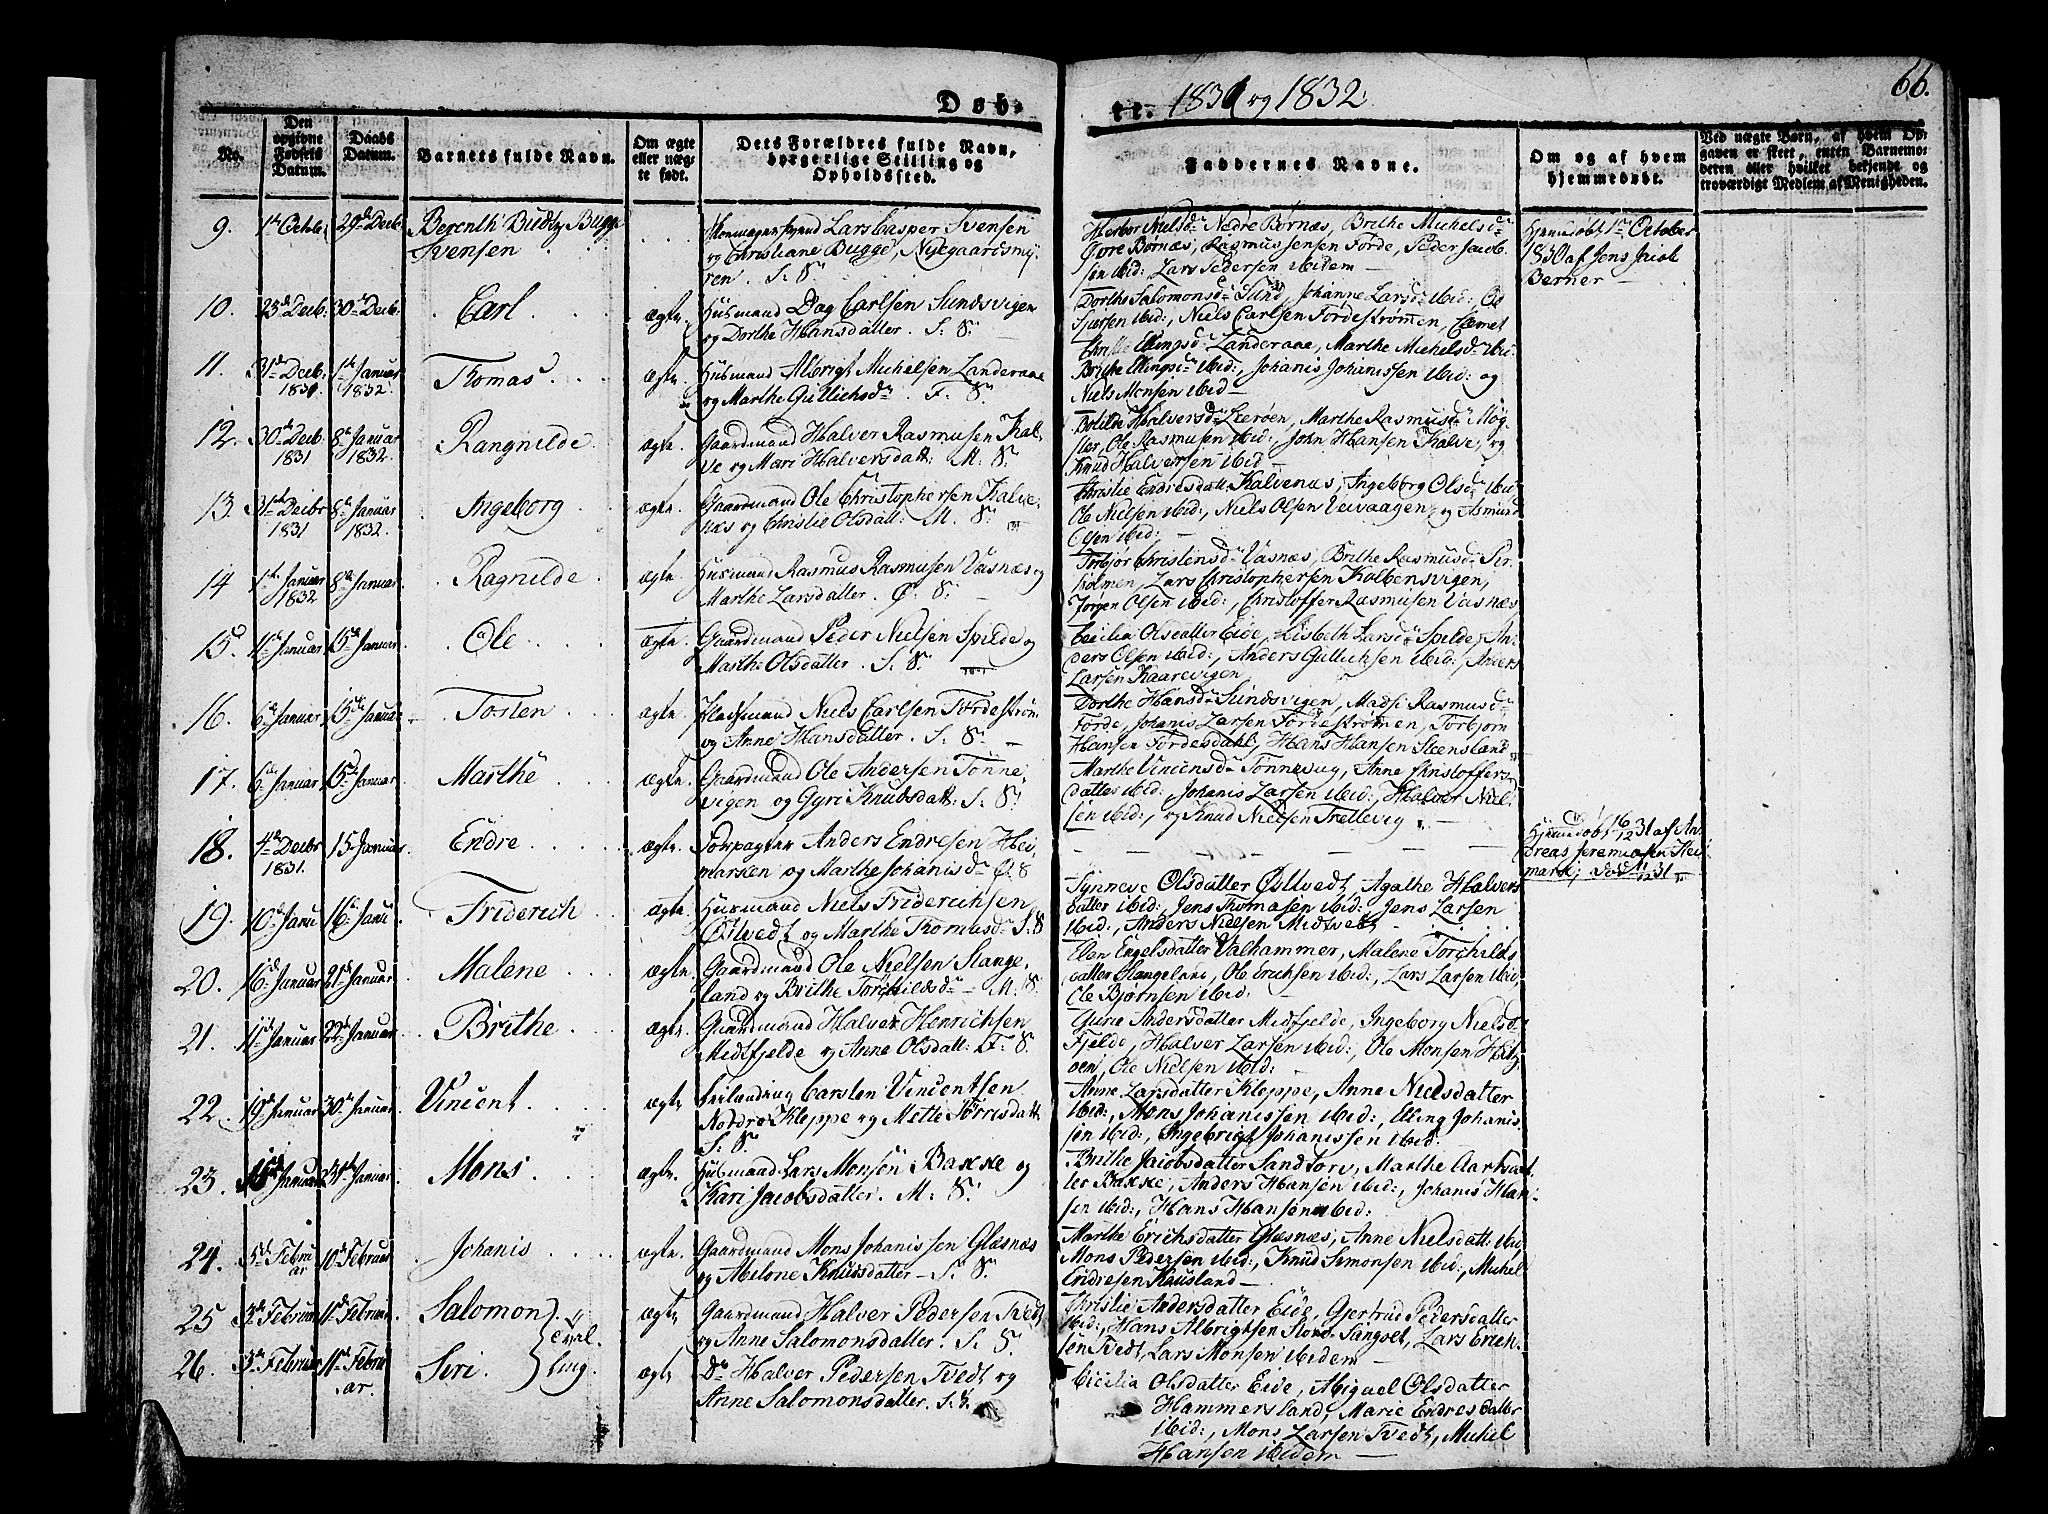 66.
Døb-
te. 1831 og 1832.
No.
Den opgivne Fødsels Datum.
Daabs Datum.
Barnets fulde Navn.
Om ægte eller uægte født.
Dets Forældres fulde Navn, borgerlige Stilling og Opholdssted.
Faddernes Navne.
Om og af hvem hjemmedøbt.
Ved uægte Børn, af hvem Opgaven er skeet, enten Barnemoderen eller hvilket bekjendt og troværdigt Medlem af Menigheden.
9. 1ste Octobr 29de Decb. Berenth Budtz Bugge
Svensen
Lars Casper Svensen
og Christiane Bugge, Nygaardsmy-
ren. S: S.
Herbor Nielsd: Nedre Børnæs, Brithe Michelsd:
Øvre Børnæs, Rasmus Jensen Førde, Peder Jacob-
sen ibid:, Lars Pedersen ibidem
1ste October
1830 af Jens Jacob
Berner
10. 23de Decb. 30te Decb. Carl ægte. Huusmand Dag Carlsen Sundsvigen
og Dorthe Hansdatter. S: S.
Dorthe Salomonsd: Sund, Johanne Larsd: ibid:
ibid:, Niels Carlsen Førdestrømen,
11. 31te Decb. 1831. 1ste Januar 1832. Thomas ægte. Huusmand Albrigt Michelsen Landeraae
og Marthe Gullichsd: F. S.
Christie Ellingsd: Landeraae, Marthe Michelsd: ibid:
Brithe Ellingsd: ibid:, Johanis Johanissen ibid: og
Niels Monsen ibid:
12. 30te Decb. 1831 8de Januar 1832. Rangnilde ægte. Gaardmand Halver Rasmusen Kal-
ve og Mari Halversdatt: M. S.
Bolilde Halversd: Lerøen, Marthe Rasmusd: Møg-
ster, Ole Rasmusen ibid:, John Hansen Kalve, og
Knud Halversen ibid
13. 31te Decbr 1831 8de Januar 1832. Ingeborg ægte. Gaardmand Ole Christophersen Kalve-
næs og Christie Olsdatt: M. S.
Christie Endresdatt: Kalvenæs, Ingeborg Olsd: ibid:
Ole Nielsen ibid:, Niels Olsen Veivaagen, og Asmund
Olsen ibid:
14 1ste Januar 1832 8de Januar Ragnilde ægte. Huusmand Rasmus Rasmusen Vasnæs og
Marthe Larsdatter. Ø. S.
Torbjør Christensd: Vasnæs, Brithe Rasmusd:
holmen, Lars Christophersen Kolbensvigen,
Jørgen Olsen ibid:, Christoffer Rasmusen Vasnæs
15. 11te Januar 15de Januar Ole ægte. Gaardmand Peder Nielsen Spilde og
Marthe Olsdatter. S. S.
Cicilia Olsdatter Eide, Lisbeth Larsd: Spilde, An-
ders Olsen ibid:, Anders Gullichsen ibid:, Anders
Larsen Kaarevigen
16. 6te Januar 15de Januar Tosten ægte. Pladsmand Niels Carlsen Førdestrøm
og Anne Hansdatter. S. S.
Dorthe Hansd: Sundsvigen, Madsi Rasmusd:
Førde, Johanis Larsen Førdestrømen, Torbjørn
Hansen Førdesdahl, Hans Hansen Steensland
17. 6te Januar 15de Januar Marthe ægte. Gaardmand Ole Andersen Tønne-
vigen og Gyri Knudsdatt: S. S.
Marthe Vincensd: Tønnevug, Anne Christoffers-
datter ibid:, Johanis Larsen ibid:, Halver Niel-
sen ibid:, og Knud Nielsen Trellevig
18. 4de Decbr 1831. 15de Januar Endre ægte. Forpagter Anders Endresen Hei-
marken og Marthe Johanisd: Ø. S
16/12 31 af An-
dreas Jeremiasen Hei-
mark; død /12 31
19. 10de Janu 16de Janu. Friderich ægte. Huusmand Niels Friderichsen
Østvedt og Marthe Thomasd: S. S
Synneve Olsdatter Østvedt, Agathe Halvers-
datter ibid:, Jens Thomasen ibid:, Jens Larsen
ibid:, Anders Nielsen Midtvedt
20. 16de Januar 21de Januar Malene ægte. Gaardmand Ole Nielsen Stange-
land og Brithe Torchildsd: M. S.
Elen Engelsdatter Valhammer, Malene Torchilds-
datter Stangeland, Ole Erichsen ibid:, Lars Larsen ibid,
Ole Bjørnsen ibid:
21. 11te Januar 22de Januar Brithe ægte. Gaardmand Halver Henrichsen
Midtfjelde og Anne Olsdatt: F. S.
Gurie Andersdatter Midfjelde, Ingeborg Nielsd:
Fjelde, Halver Larsen ibid:, Ole Monsen
Ole Nielsen ibid:
22. 19de Januar 30te Januar. Vincent ægte Carsten Vincentsen
Nordre Kleppe og Mette Torrisdatt.
S. S.
Anne Larsdatter Kleppe, Anne Nielsdatter
ibid:, Mons Johanissen ibid:, Elling Johanis-
sen ibid:, Ingebrigt Johanissen ibid:
23. Januar 31te Januar. Mons ægte. Huusmand Lars Monsen Bakke og
Kari Jacobsdatter. M. S.
Brithe Jacobsdatter Sandtorv, Marthe
ter Bakke, Anders Hansen ibid:, Johanis Han-
sen ibid:, Hans Hansen ibid:
24. 5te Februar 10de Februar Johanis ægte. Gaardmand Mons Johanissen Glæsnæs
og Abelone Knudsdatter S. S.
Marthe Erichsdatter Glæsnæs, Anne Nielsdatt: ibid
Mons Pedersen ibid:, Knud Simonsen ibid:, Michel
Endresen Kausland
25 3de Februar 11te Februar Salomon ægte Gaardmand Halver Pedersen Tvedt
og Anne Salomonsdatter. S. S.
Christie Andersdatter Eide, Gjertrud Pedersdatter
ibid:, Hans Albrigtsen Store Sangolt, Lars Erich-
sen Tvedt, Lars Monsen ibidem
26. 3de Februar 11te Februar. Siri. ægte Do Halver Pedersen Tvedt og
Anne Salomonsdatter. S. S.
tvil-
ling.
Cicilia Olsdatter Eide, Abiguel Olsdatter
Hammersland, Marie Endresdatter
ibid:, Mons Larsen Tvedt, Michel
Hansen ibidem